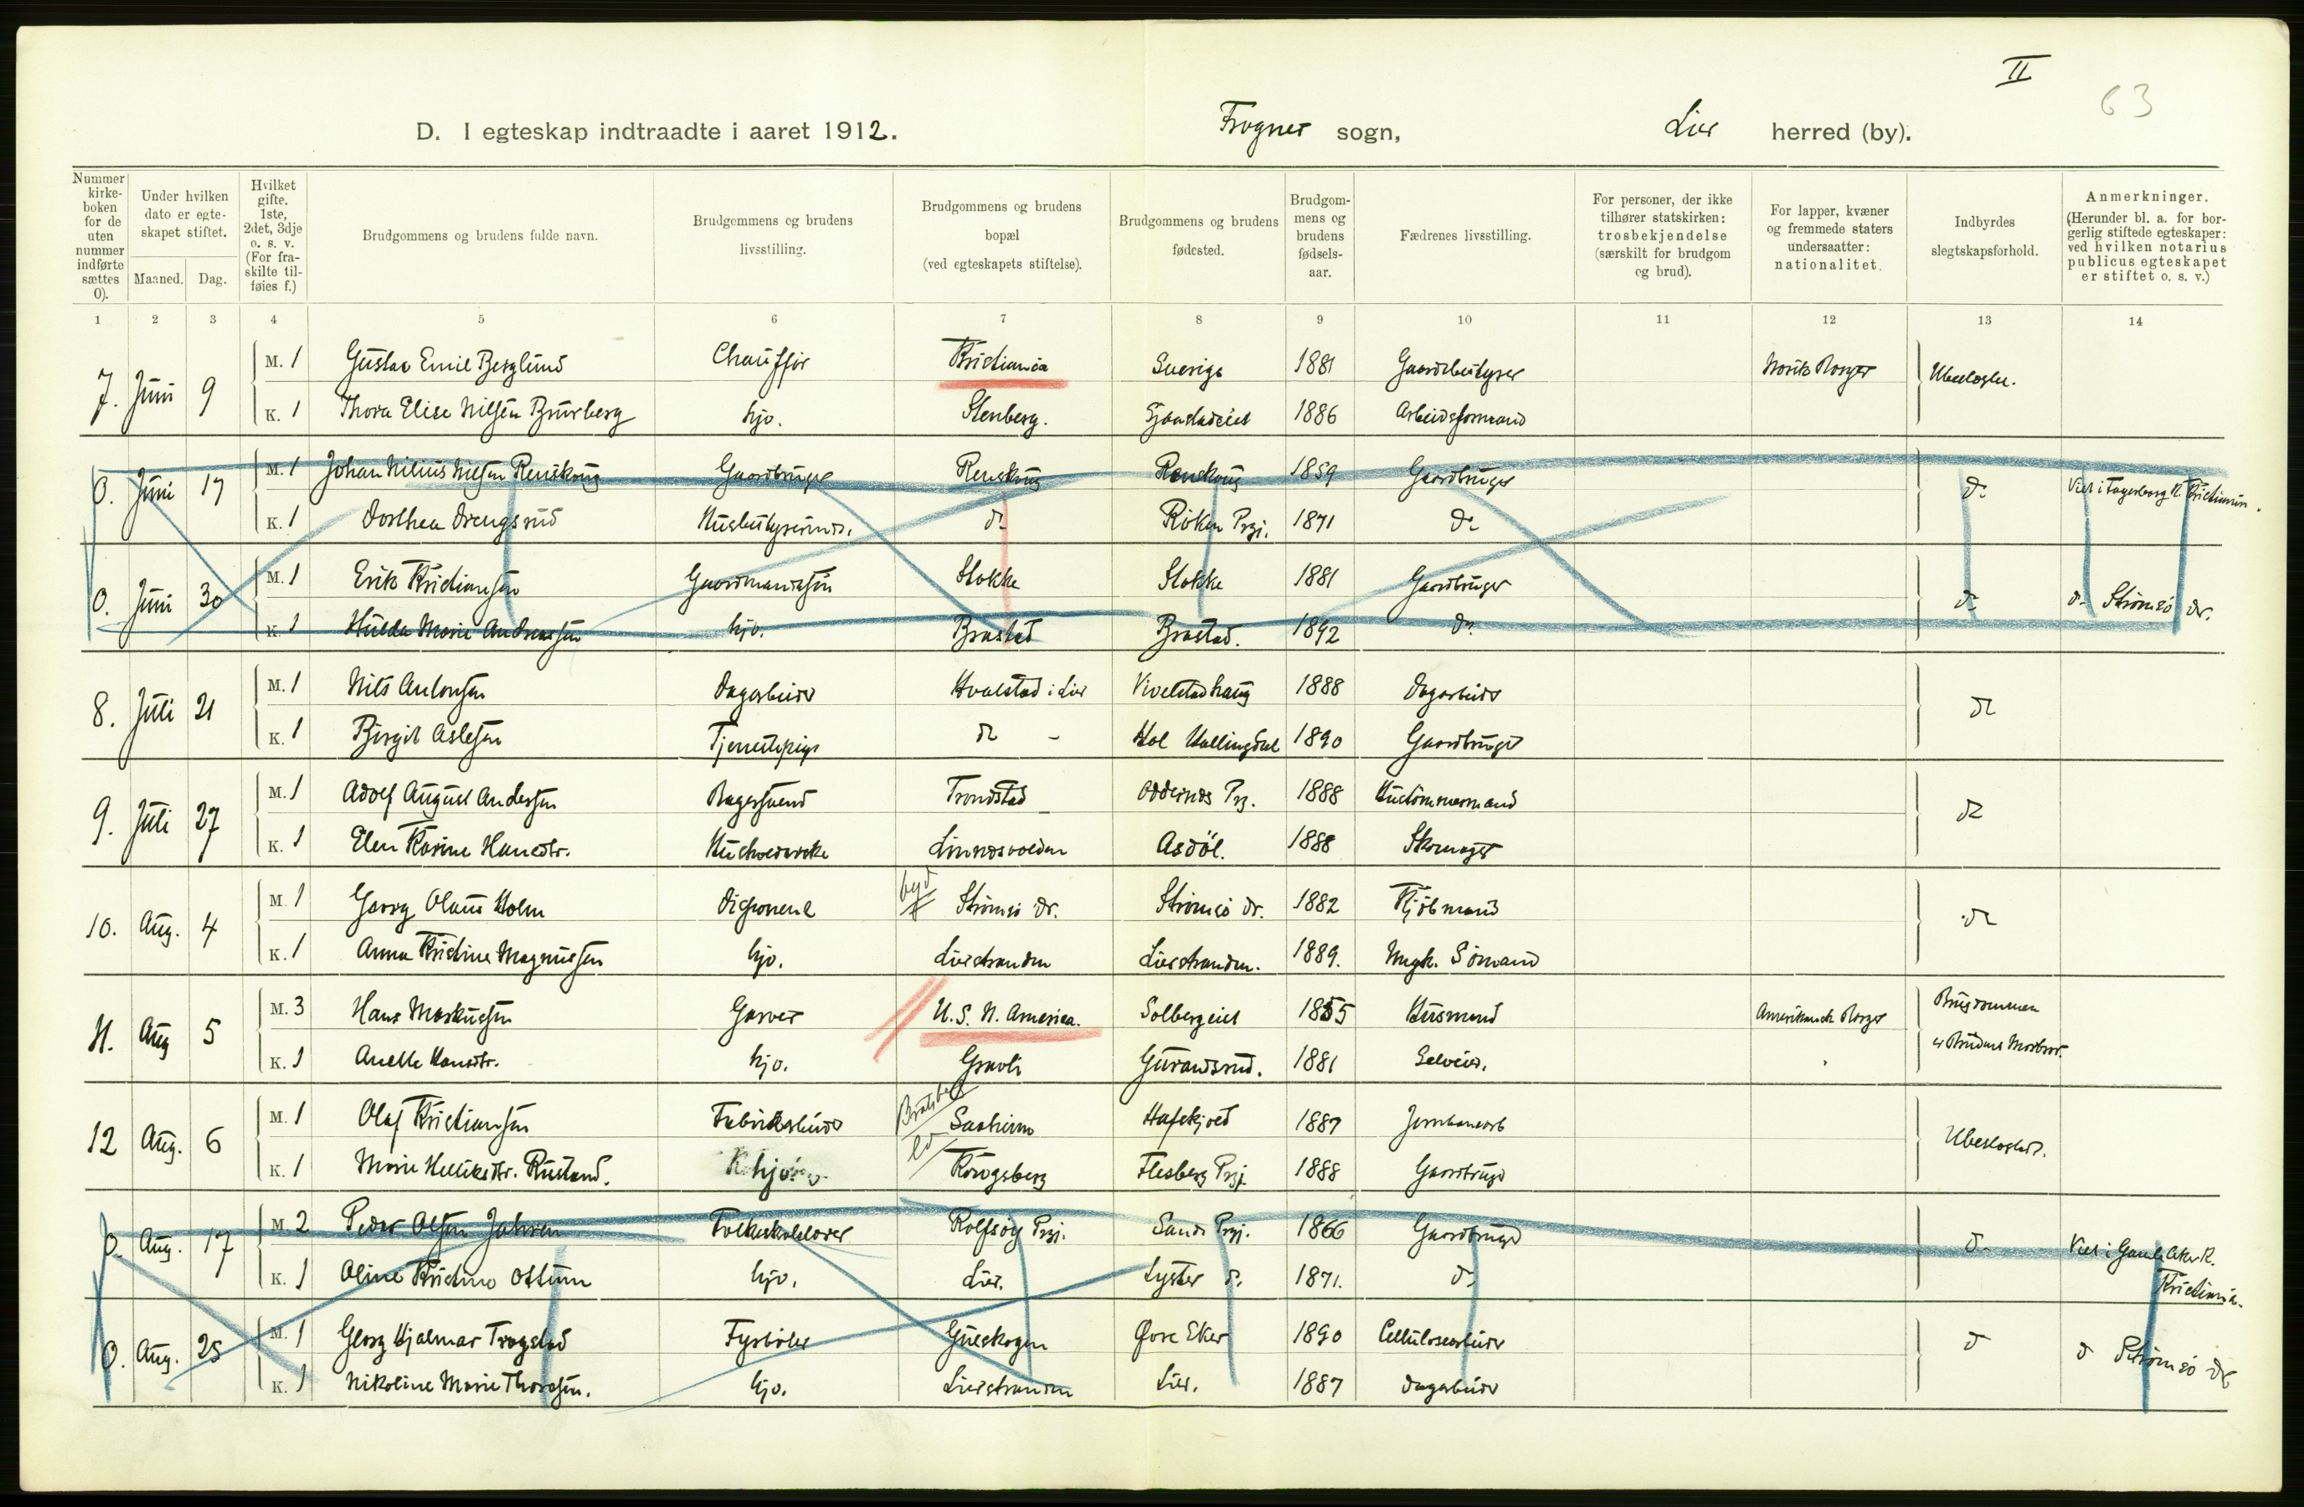 II
63
D. I egteskap indtraadte i aaret 1912. Frogner sogn, Lier herred (by).
Nummer kirke-boken for de uten nummer indførte sættes 0). Under hvilken dato er egte-skapet stiftet. Maaned. Dag. Hvilket gifte. 1ste, 2det, 3dje o. s. v. (For fra-skilte til-føies f.) Brudgommens og brudens fulde navn. Brudgommens og brudens livsstilling. Brudgommens og brudens bopæl (ved egteskapets stiftelse). Brudgommens og brudens fødested. Brudgom-mens og brudens fødsels-aar. Fædrenes livsstilling. For personer, der ikke tilhører statskirken: trosbekjendelse (særskilt for brudgom og brud). For lapper, kvæner og fremmede staters undersaatter: nationalitet. Indbyrdes slegtskapsforhold. Anmerkninger. (Herunder bl. a. for bor-gerlig stiftede egteskaper: ved hvilken notarius publicus egteskapet er stiftet o. s. v.)
1 2 3 4 5 6 7 8 9 10 11 12 13 14
7. Juni 9 M. 1 Gustav Emil Berglund Chauffør Kristiania Sverige 1881 Gaardbruger Norsk Borger Ubeslegtet.
K. 1 Thora Elise Nilsen Burberg hjv. Stenberg. 1886 Arbeidsformand
0. Juni 17 M. 1 Johan Nilius Nilsen Renskoug Gaardbruger Renskoug Renskoug 1859 Gaardbruger d: Viet i Fagerborg K. Kristiania.
K. 1 Dorthea Drengsrud d: Røken Prgj. 1871 d:
0. Juni 30 M. 1 Erik Kristiansen Gaardmandssøn Stokke Stokke 1881 Gaardbruger d: d: Strømsø Dr.
K. 1 Hulda Marie Andreassen hjv. Brastad Brastad. 1892 d:
8. Juli 21 M. 1 Nils Antonsen Dagarbeider Hvalstad i Lier Vivelstadhaug 1888 Dagarbeider d:
K. 1 Birgit Aslesen Tjenestepige d: - Hol Hallingdal 1890 Gaardbruger
9. Juli 27 M. 1 Adolf August Andersen Bagersvend Tronstad Oddernes Prg. 1888 Hustømmermand d:
K. 1 Elen Karine Hansdtr. Linnesvolden Asdøl. 1888 Skomager
10. Aug. 4 M. 1 Georg Olaus Holm Disponent byd Strømsø Dr. Strømsø Dr. 1882 Kjøbmand d:
K. 1 Anna Kristine Magnussen hjv. Lierstranden Lierstranden. 1889. Ungk. Sømand
11. Aug 5 M. 3 Hans Markussen Garver U. S. N. America. Solbergeiet 1855 Husmand Amerikansk Borger Brudgommen
K. 1 Anette Hansdtr. hjv. Gravli Gurandsrud. 1881 Selveier. er Brudens Morbror.
12 Aug. 6 M. 1 Olaf Kristiansen Fabrikarbeider Bratsberg Saaheim Hafskjold 1887 Jernbanearb Ubeslegtede.
K. 1 Marie Helliksdtr. Rustand. hjv. Kongsberg Flesberg Prgj. 1888 Gaardbruger
0. Aug. 17 M. 2 Peder Olsen Jahren Folkeskolelærer Rolfsøy Prgj. Sande Prgj. 1866 Gaardbruger d: Viet i Gamle Aker K.
K. 1 Oline Kristine Ottum hjv. Lier. Lyster d: 1871. d: Kristiania.
0. Aug. 25 M. 1 Georg Hjalmar Trogstad Fyrbøter Gulskogen Øvre Eker 1890 Cellulosearbeider d d Strømsø Dr
K. 1 Nikoline Marie Thoresen. hjv. Lierstranden Lier. 1887 Dagarbeider